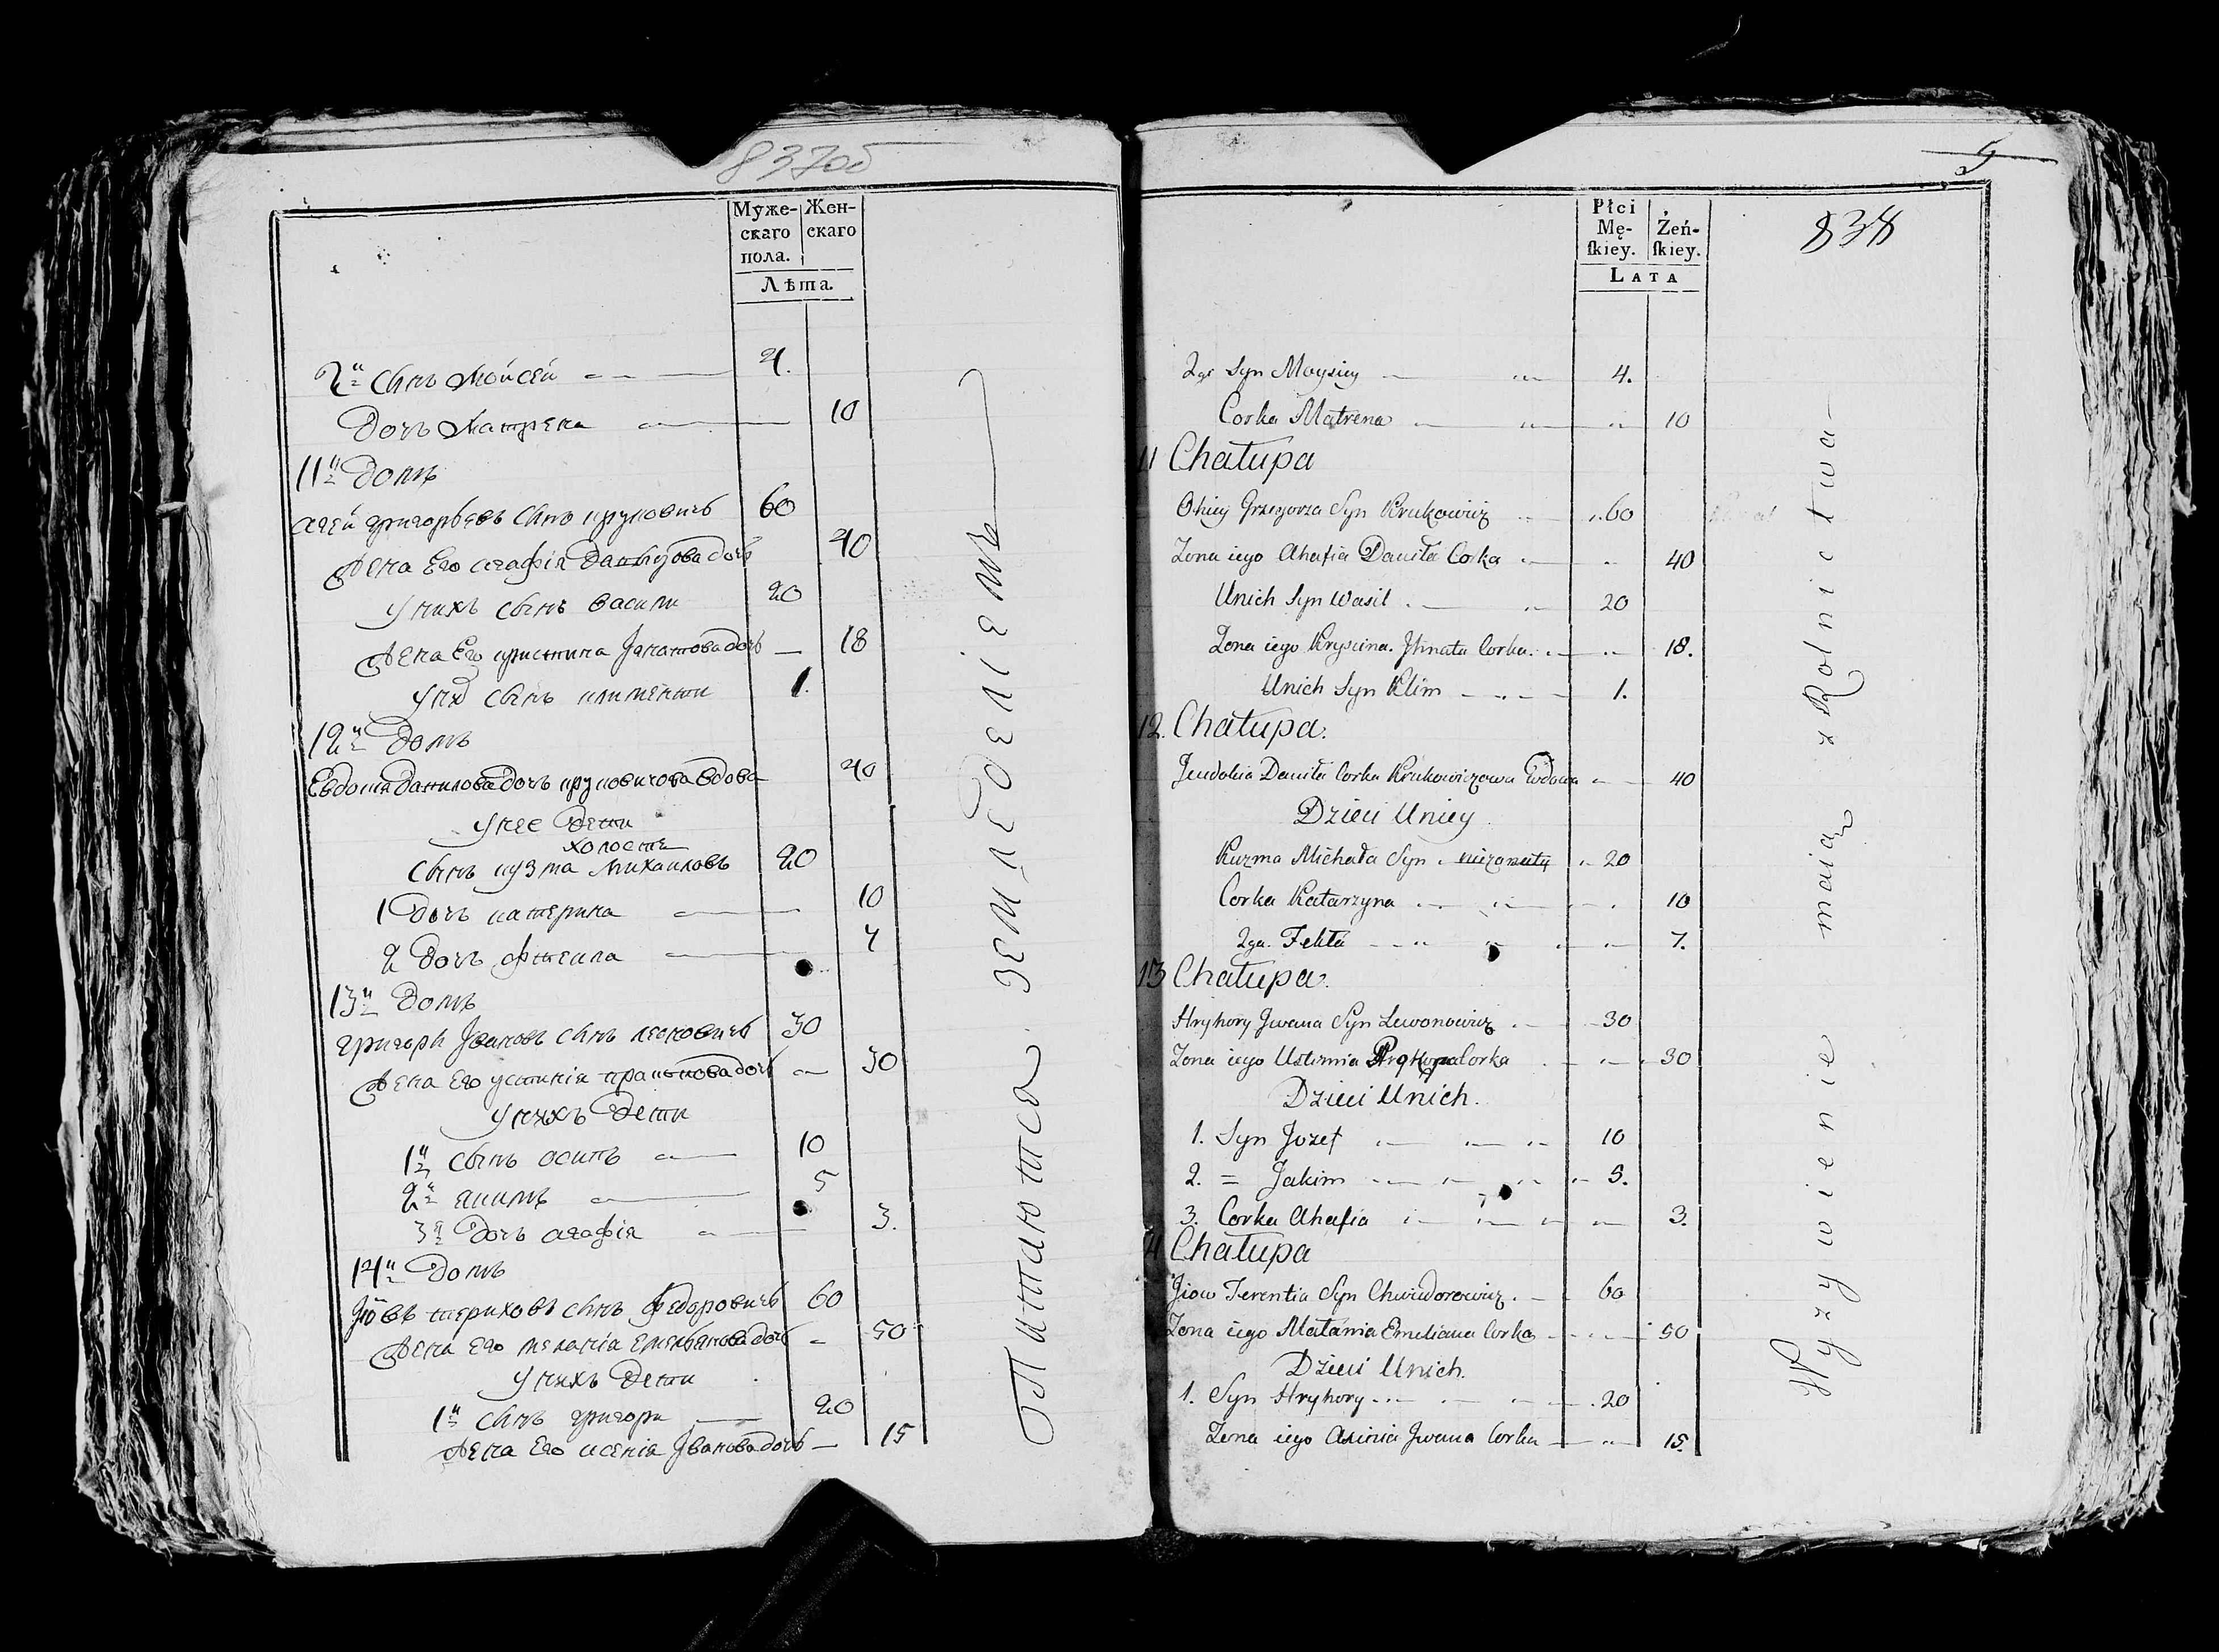 837об
Муже- Жен-
скаго скаго
пола.
Лѣта.
2й Сынъ Мойсей 4.
Дочъ Матрена 10
11й Домъ
агей григорьевъ Сынъ круковичъ 60
жена Его агафия Данилова дочъ 40
у нихъ Сынъ василі 20
жена Его кристина Јгнатова дочъ 18
у них Сынъ климентіи 1.
12й Домъ
Евдокия Данилова Дочъ круковичова вдова 40
у нее Дети
холостъ
Сынъ кузма Михаиловъ 20
1 Дочъ катерина 10
2 Дочъ фтекла 7
13й Домъ
григори Јвановъ Сынъ 30
жена Его устинія дочъ 30
у нихъ Дети
1й Сынъ осипъ 10
2й якимъ 5
3я Дочъ агафія 3.
14й Домъ
Јовъ Сынъ федоровичъ 60
жена Его меланія Емельянова дочъ 50
у нихъ Дети
1й Сынъ григори 20
жена Его ксенія Јванова дочъ 15
Питаютса земледелиемъ
5
838
Płci
Mę- Żeń-
ſkiey. ſkiey.
LATA
2gi Syn Moysiey 4.
Corka Matrena 10
11 Chałupa
Ohiey Grzegorza Syn Krukowicz 60
Zona iego Ahafia Daniła Corka 40
Unich Syn Wasil 20
Zona iego Kryscina Ihnata Corka 18.
Unich Syn Klim 1.
12. Chałupa.
Jeudokia Daniła Corka Krukowiczowa Wdowa 40
Dzieci Uniey
Kuzma Michała Syn niezonaty 20
Corka Katarzyna 10
2ga. Fekła 7.
13 Chałupa.
Hryhory Jwana Syn Lewonowicz 30
Zona iego Ustinnia Corka 30
Dzieci Unich.
1. Syn Jozef 10
2. = Jakim 5.
3. Corka Ahafia 3.
Chałupa
Jiow Terentia Syn Chwiedorowicz 60
Zona iego Małania Emeliana Corka 50
Dzieci Unich.
1. Syn Hryhory 20
Zona iego Axinia Jwana Corka 15.
Wyzywienie maią z Rolnictwa